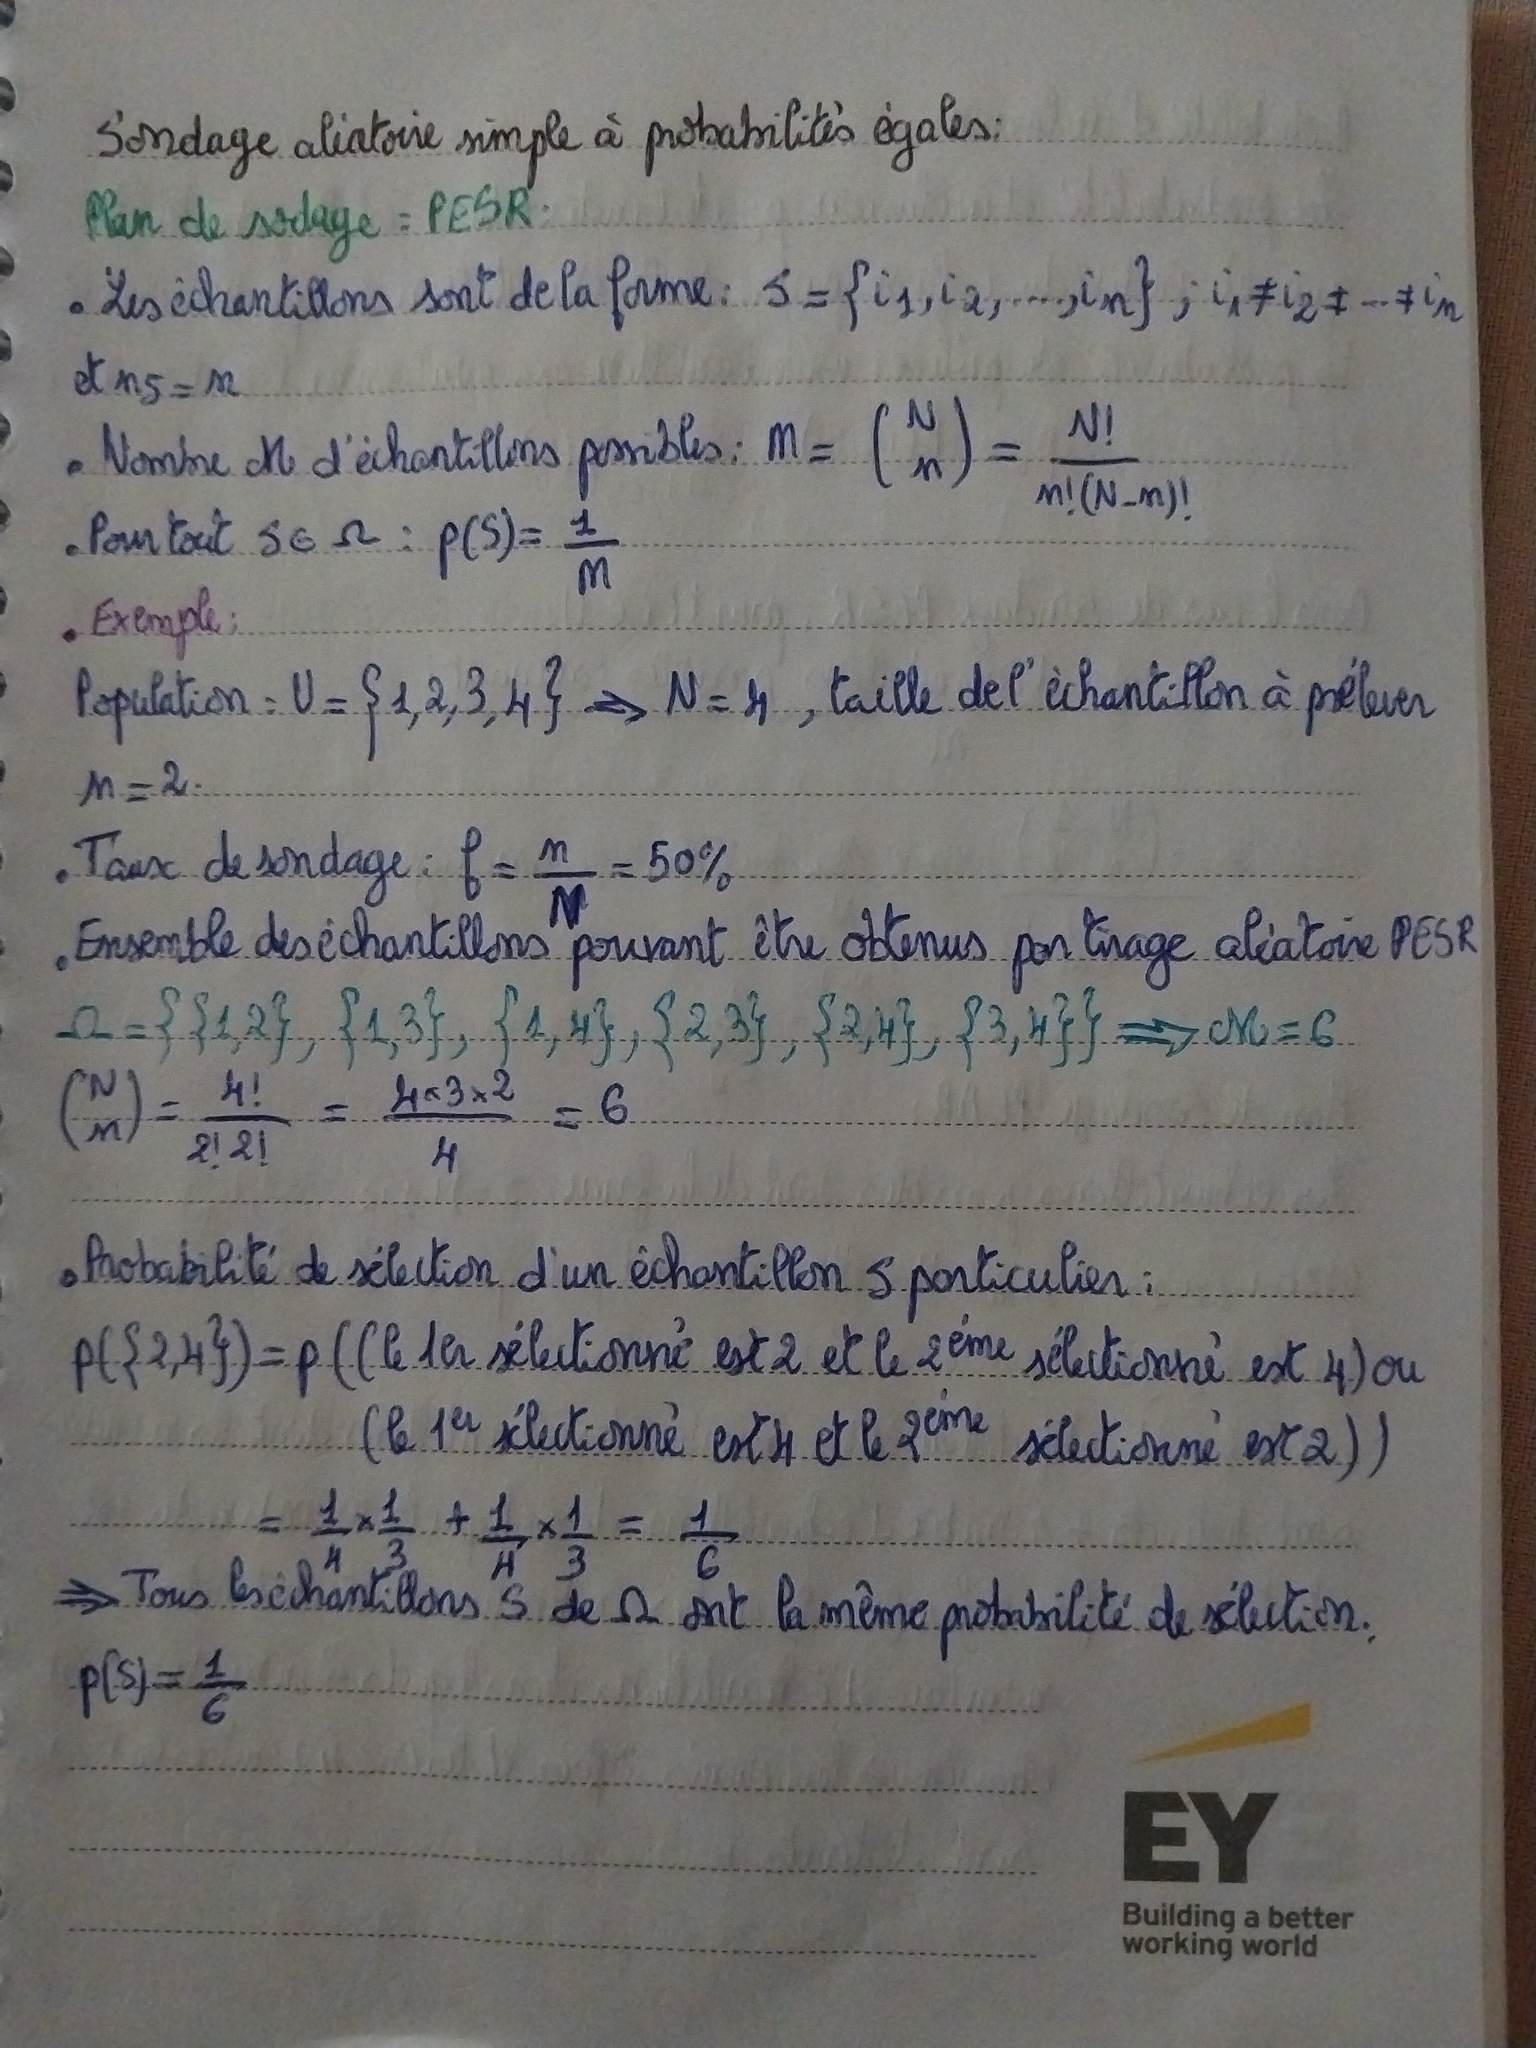 Sondage aléatoire simple à probabilités égales:
Plan de sodage = PESR.
• Les échantillons sont de la forme: S = {i1, i2, ..., in} ; i1 ≠ i2 ≠ ... ≠ in
et ns = n
• Nombre M d'échantillons possibles: M = (N n) = N! / n!(N-n)!
• Pour tout s ∈ Ω : p(S) = 1/M
• Exemple:
Population = U = {1,2,3,4} ⇒ N = 4, taille de l'échantillon à prélever
n = 2.
• Taux de sondage: f = n/N = 50%
• Ensemble des échantillons pouvant être obtenus par tirage aléatoire PESR
Ω = {{1,2}, {1,3}, {1,4}, {2,3}, {2,4}, {3,4}} ⇒ M = 6
(N n) = 4! / 2! 2! = 4×3×2 / 4 = 6
• Probabilité de sélection d'un échantillon S particulier:
p({2,4}) = p((le 1er sélectionné est 2 et le 2éme sélectionné est 4) ou
(le 1er sélectionné est 4 et le 2éme sélectionné est 2))
= 1/4 × 1/3 + 1/4 × 1/3 = 1/6
⇒ Tous les échantillons S de Ω ont la même probabilité de sélection.
p(S) = 1/6
EY
Building a better
working world